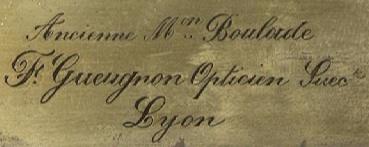 Ancienne M.on Boulade
F. Gueugnon Opticien Succr
Lyon